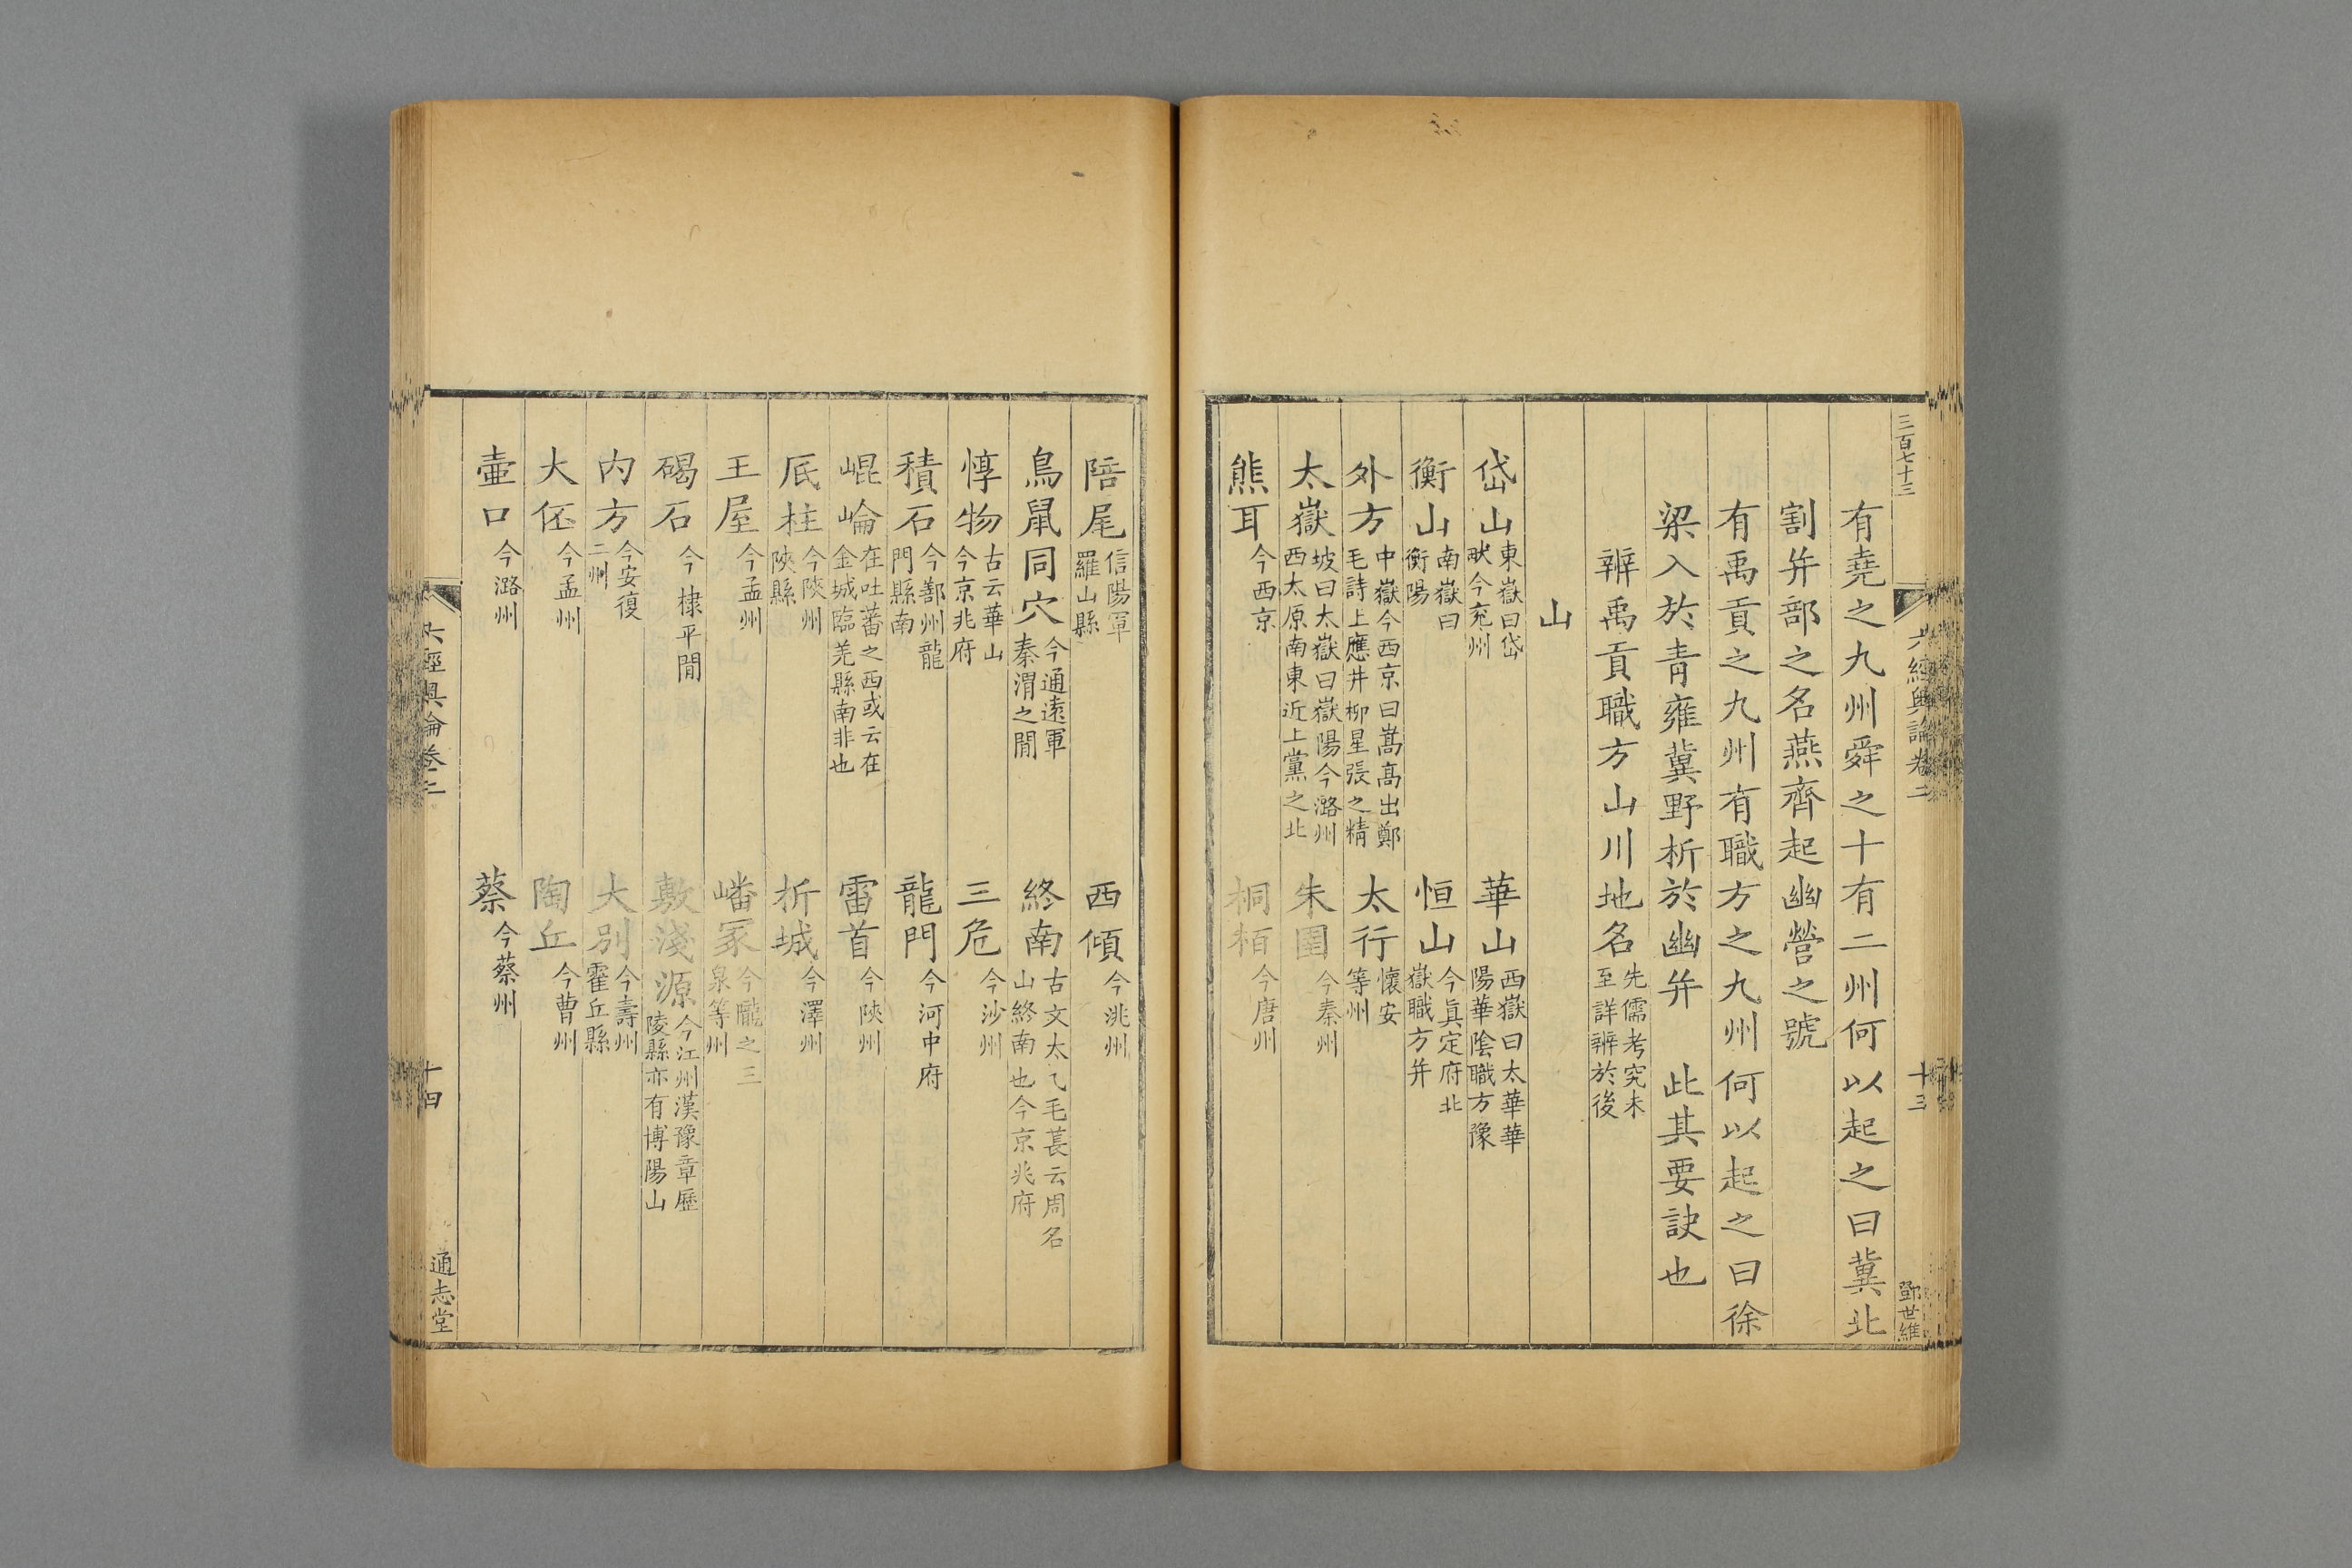 三百七十三
六經奧論卷二
十三
鄧世維
有堯之九州舜之十有二州何以起之曰冀北
割并部之名燕齊起幽營之號
有禹貢之九州有職方之九州何以起之曰徐
梁入於青雍冀野析於幽并 此其要訣也
辨禹貢職方山川地名先儒考究未至詳辨於後
山
岱山東嶽曰岱畎今兖州 華山西嶽曰太華華陽華隂職方豫
衡山南嶽曰衡陽 恒山今眞定府北嶽職方并
外方中嶽今西京曰嵩高出鄭毛詩上應井柳星張之精 太行懷安等州
太嶽坡曰太嶽曰嶽陽今潞州西太原南東近上黨之北 朱圉今秦州
熊耳今西京 桐栢今唐州
陪尾信陽軍羅山縣 西傾今洮州
鳥鼠同穴今通遠軍秦渭之閒 終南古文太乙毛萇云周名山終南也今京兆府
惇物古云華山今京兆府 三危今沙州
積石今鄯州龍門縣南 龍門今河中府
崐崘在吐蕃之西或云在金城臨羌縣南非也 雷首今陝州
厎柱今陝州陝縣 析城今澤州
王屋今孟州 嶓冢今隴之三泉等州
碣石今棣平閒 敷淺源今江州漢豫章歷陵縣亦有博陽山
内方今安復二州 大别今壽州霍丘縣
大伾今孟州 陶丘今曹州
壷口今潞州 蔡今蔡州
六經奧論卷二
十四
通志堂